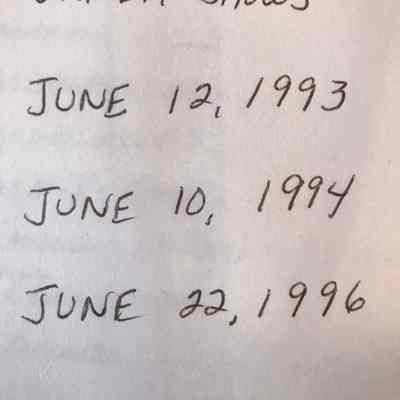 SHOWS
JUNE 12, 1993
JUNE 10, 1994
JUNE 22, 1996